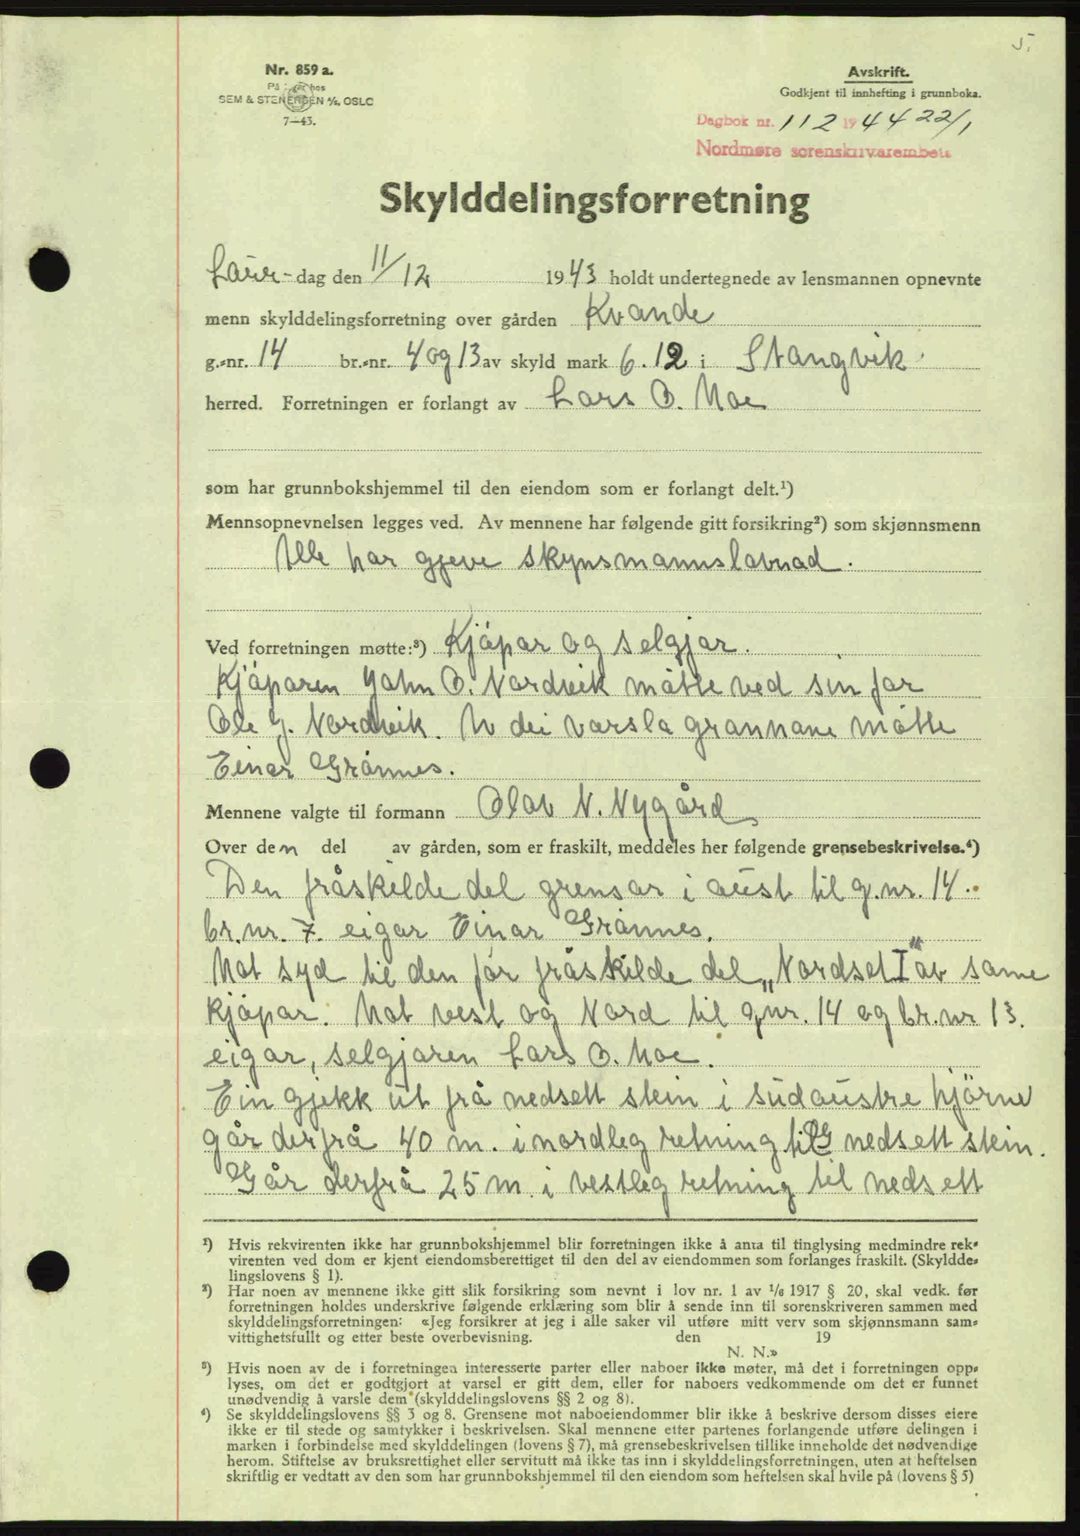 5.
Nr. 859 a.
SEM & STENERSEN A/S, OSLO
7-43.
Avskrift.
Godkjent til innhefting i grunnboka.
Dagbok nr. 112 1944 22/1
Nordmøre sorenskriverembete
Skylddelingsforretning
Laur-dag den 11/12 1943 holdt undertegnede av lensmannen opnevnte
menn skylddelingsforretning over gården Kvande
g.-nr. 14 br.-nr. 4 og 13 av skyld mark 6.12 i Stangvik
herred. Forretningen er forlangt av Lars O. Moe
som har grunnbokshjemmel til den eiendom som er forlangt delt.¹)
Mennsopnevnelsen legges ved. Av mennene har følgende gitt forsikring²) som skjønnsmenn
Alle har gjeve skynsmannslovnad.
Ved forretningen møtte:³) Kjøpar og selgjar.
Kjøparen John O. Nordvik møtte ved sin far
Ole J. Nordvik. Av dei varsla grannane møtte
Einar Grønnes.
Mennene valgte til formann Olav N. Nygård
Over den del av gården, som er fraskilt, meddeles her følgende grensebeskrivelse.⁴)
Den fråskilde del grensar i aust til g.nr. 14.
br.nr. 7. eigar Einar Grønnes.
Mot syd til den før fråskilde del „Nordset I" av same
kjøpar. Mot vest og Nord til g.nr. 14 og br.nr 13.
eigar, selgjaren Lars O. Moe.
Ein gjekk ut frå nedsett stein i südaustre hjörne
går derfrå 40 m. i nordleg retning til nedsett stein.
Går derfrå 25 m. i vestleg retning til nedsett
¹) Hvis rekvirenten ikke har grunnbokshjemmel blir forretningen ikke å anta til tinglysing medmindre rek-
virenten ved dom er kjent eiendomsberettiget til den del av eiendommen som forlanges fraskilt. (Skyldde-
lingslovens § 1).
²) Har noen av mennene ikke gitt slik forsikring som nevnt i lov nr. 1 av 1/6 1917 § 20, skal vedk. før
forretningen holdes underskrive følgende erklæring som blir å sende inn til sorenskriveren sammen med
skylddelingsforretningen: «Jeg forsikrer at jeg i alle saker vil utføre mitt verv som skjønnsmann sam-
vittighetsfullt og etter beste overbevisning. den 19
N. N.»
³) Hvis noen av de i forretningen interesserte parter eller naboer ikke møter, må det i forretningen opp-
lyses, om det er godtgjort at varsel er gitt dem, eller for naboers vedkommende om det er funnet
unødvendig å varsle dem (skylddelingslovens §§ 2 og 8).
⁴) Se skylddelingslovens §§ 3 og 8. Grensene mot naboeiendommer blir ikke å beskrive dersom disses eiere
ikke er til stede og samtykker i beskrivelsen. Skal mennene etter partenes forlangende utføre delingen i
marken i forbindelse med skylddelingen (lovens § 7), må grensebeskrivelsen tillike inneholde det nødvendige
herom. Stiftelse av bruksrettighet eller servitutt må ikke tas inn i skylddelingsforretningen, uten at heftelsen
skriftlig er vedtatt av den som har grunnbokshjemmel til den eiendom som heftelsen skal hvile på (lovens § 5)